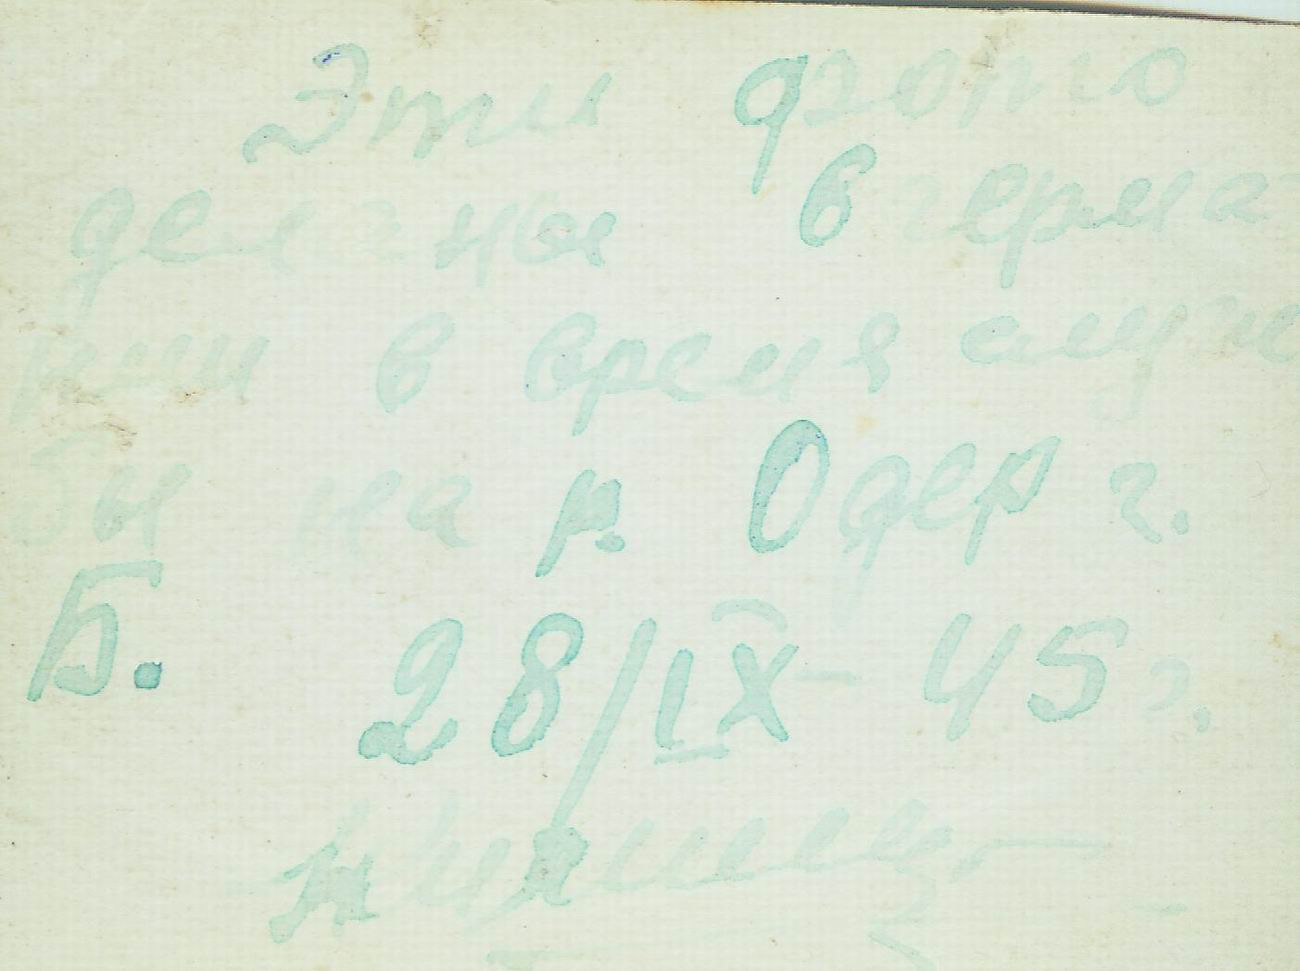 Эти фото
деланы в герма
нии в время служ
бы на р. Одер г.
Б. 28/IX-45 г.